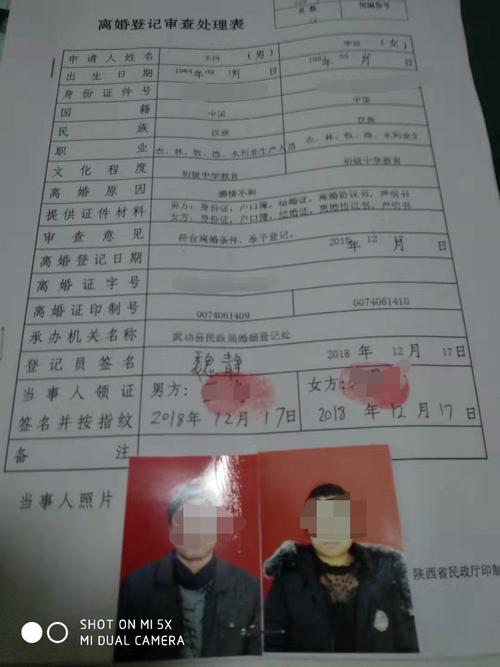 离婚登记审查处理表
申请人姓名 （男） （女）
出生日期 1964年09 月 日 年05 月 日
身份证件号
国籍 中国 中国
民族 汉族 汉族
职业 农、林、牧、渔、水利业生产人员 农、林、牧、渔、水利业生产
文化程度 初级中学教育 初级中学教育
离婚原因 感情不和
提供证件材料 男方：身份证，户口簿，结婚证，离婚协议书，声明书
女方：身份证，户口簿，结婚证，离婚协议书，声明书
审查意见 符合离婚条件，准予登记。
离婚登记日期 2018年 12 月 日
离婚证字号
离婚证印制号 0074061409 0074061410
承办机关名称 武功县民政局婚姻登记处
登记员签名 魏静 2018 年 12 月 17日
当事人领证 男方： 女方：
签名并按指纹 2018年12月17日 2018 年12月17日
备注
当事人照片
陕西省民政厅印制
SHOT ON MI 5X
MI DUAL CAMERA